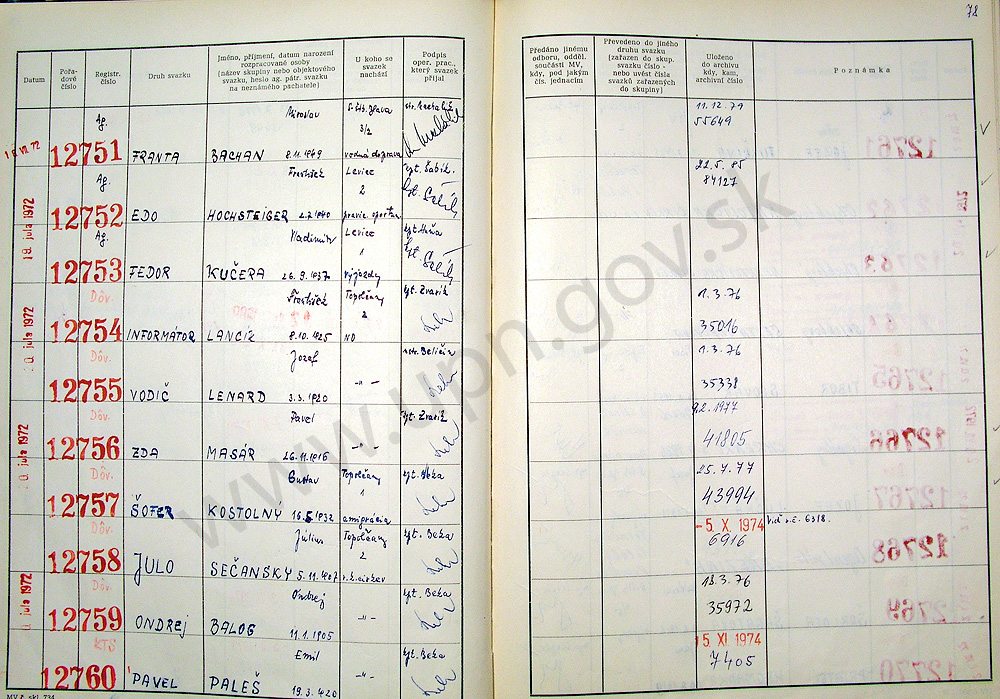 78
Datum
Pořadové číslo
Registr. číslo
Druh svazku
Jméno, příjmení, datum narození rozpracované osoby (název skupiny nebo objektového svazku, heslo ag. pátr. svazku na neznámého pachatele)
U koho se svazek nachází
Podpis oper. prac., který svazek přijal
Předáno jinému odboru, odděl. součásti MV, kdy, pod jakým čís. jednacím
Převedeno do jiného druhu svazku (zařazen do skup. svazku číslo - nebo uvést čísla svazků zařazených do skupiny)
Uloženo do archivu kdy, kam, archivní číslo
Poznámka
Ag. Miroslav 3/2 11.12.79
12751 FRANTA BACHAN 8.11.1949 vodná doprava 55649
Ag. František Levice 2 22.5.85
84127
18. júla 1972 12752 EDO HOCHSTEIGER 2.2.1940
Ag. Vladimír Levice 1
12753 FEDOR KUČERA 26.9.1937 výjazdy
Dôv. František Topolčany 2 kpt. Zvarik 1.3.76
júla 1972 12754 INFORMÁTOR LANCÍK 8.10.1925 NO 35016
Dôv. Jozef 1.3.76
12755 VODIČ LENARD 3.3.1920 -"- 35338
Dôv. Pavel kpt. Zvarik 9.2.1977
júla 1972 12756 ZDA MASÁR 26.11.1916 -"- 41805
Dôv. Gustav Topolčany 1 25.7.77
12757 ŠOFÉR KOSTOLNÝ 1932 emigrácia 43994
Dôv. Július Topolčany 2 kpt. Beža -5. X. 1974 Viď r.č. 6318.
12758 JULO SEČANSKÝ 5.11.1907 6916
Dôv. Ondrej kpt. Beža 18.3.76
júla 1972 12759 ONDREJ BALOG 11.1.1905 -"- 35972
KTS Emil kpt. Beža 15 XI 1974
12760 PAVEL PALEŠ 19.3.1920 -"- 7405
MV č. skl. 734
www.upn.gov.sk